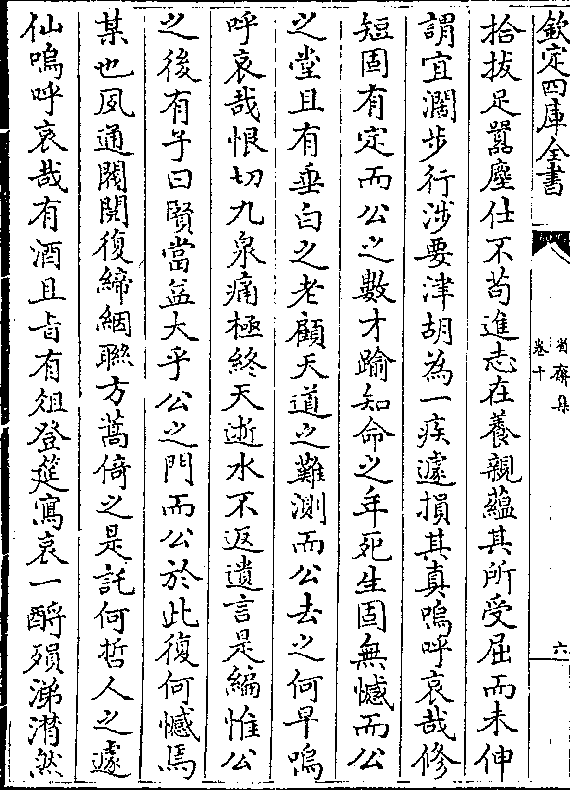 欽定四庫全書
省齋集
卷十
六
拾拔足囂塵仕不苟進志在養親蘊其所受屈而未伸
謂宜濶步行涉要津胡為一疾遽損其真嗚呼哀哉修
短固有定而公之數才踰知命之年死生固無憾而公
之堂且有垂白之老顧天道之難測而公去之何早嗚
呼哀哉恨切九泉痛極終天逝水不返遺言是編惟公
之後有子曰賢當益大乎公之門而公於此復何憾焉
某也夙通閥閱復締絪聯方蒿倚之是託何哲人之遽
仙嗚呼哀哉有酒且㫖有俎登筵寫哀一酹殞涕潸然